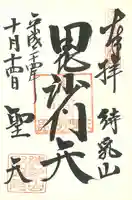 奉拝
待乳山
毘沙門天
聖天
平成二十年
十月十四日